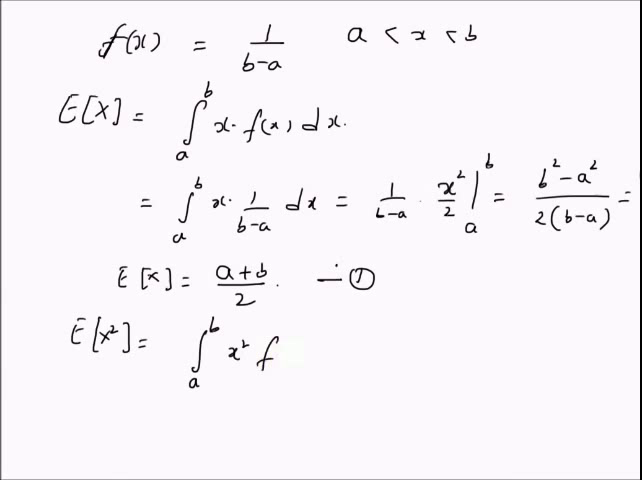 f(x) = 1/(b-a)    a < x < b
E[X] = ∫_a^b x. f(x) dx.
= ∫_a^b x. 1/(b-a) dx = 1/(b-a) . x²/2 |_a^b = (b²-a²)/(2(b-a)) =
E[x] = (a+b)/2. — ①
E[x²] = ∫_a^b x² f